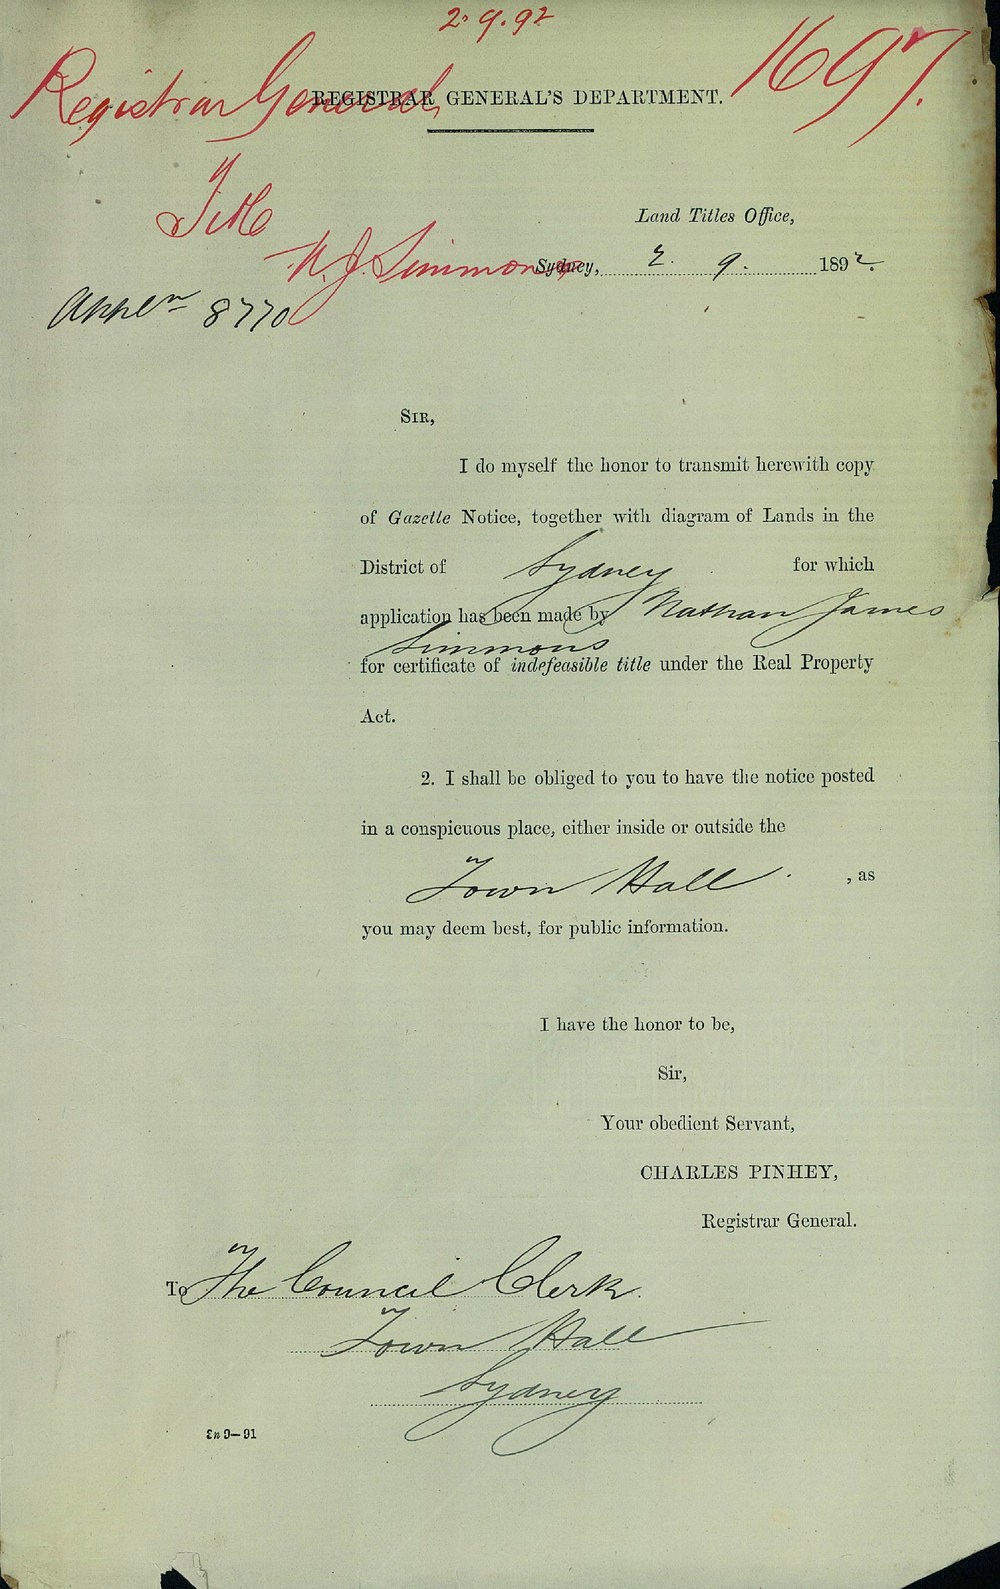 2.9.92
1697.
Registrar General
REGISTRAR GENERAL'S DEPARTMENT.
Title
Land Titles Office,
N. J. Simmons
Sydney, 2. 9. 1892.
Appln 8770
SIR,
I do myself the honor to transmit herewith copy
of Gazette Notice, together with diagram of Lands in the
District of Sydney for which
application has been made by Nathan James
Simmons
for certificate of indefeasible title under the Real Property
Act.
2. I shall be obliged to you to have the notice posted
in a conspicuous place, either inside or outside the
Town Hall , as
you may deem best, for public information.
I have the honor to be,
Sir,
Your obedient Servant,
CHARLES PINHEY,
Registrar General.
To The Council Clerk
Town Hall
Sydney
9—91